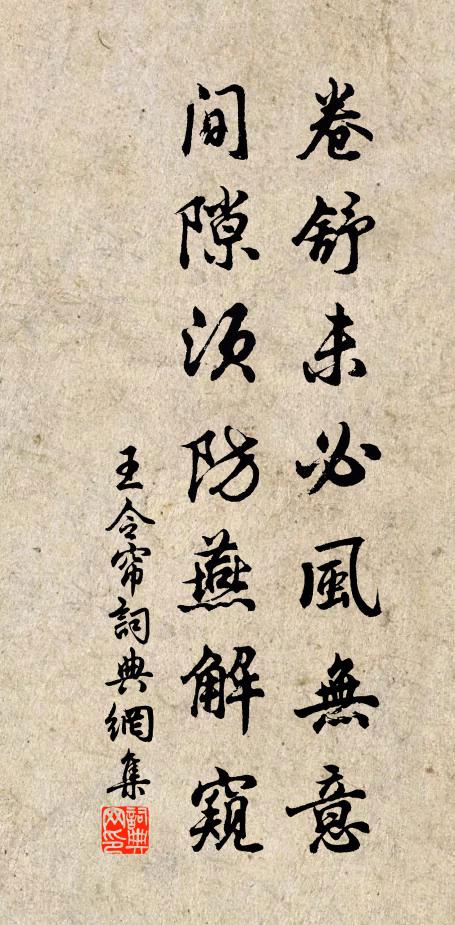 卷舒未必風無意
間隙須防燕解窺
王令帘詞典網集
詞典网印